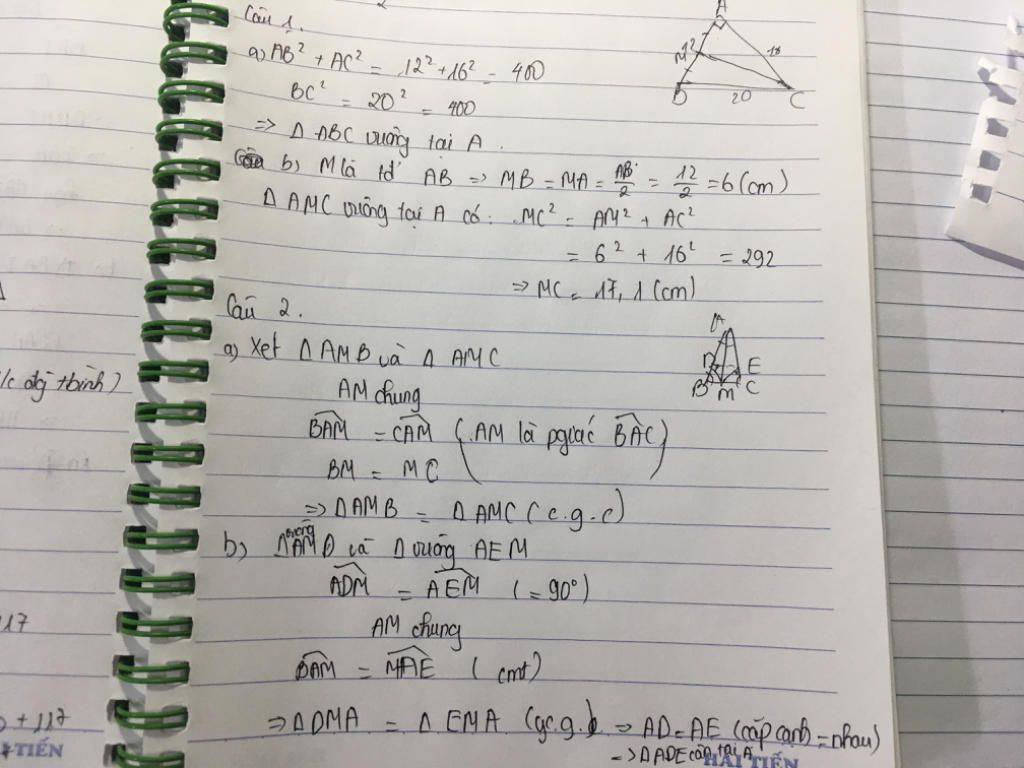 Câu 1.
a) AB² + AC² = 12² + 16² = 400
BC² = 20² = 400
=> Δ ABC vuông tại A.
b) M là tđ AB => MB = MA = AB/2 = 12/2 = 6 (cm)
Δ AMC vuông tại A có: MC² = AM² + AC²
= 6² + 16² = 292
=> MC = 17,1 (cm)
A
M
12
B
20
C
Câu 2.
a) Xét Δ AMB và Δ AMC
AM chung
BAM = CAM (AM là pgiác BAC)
BM = MC
=> Δ AMB = Δ AMC (c.g.c)
A
D
E
B
M
C
b) Δ vuông AMD và Δ vuông AEM
ADM = AEM (= 90°)
AM chung
BAM = MAE (cmt)
=> Δ DMA = Δ EMA => AD = AE (cặp cạnh = nhau)
=> Δ ADE cân tại A
HẢI TIẾN
/c độ tbình)
17
+ 117
TIẾN